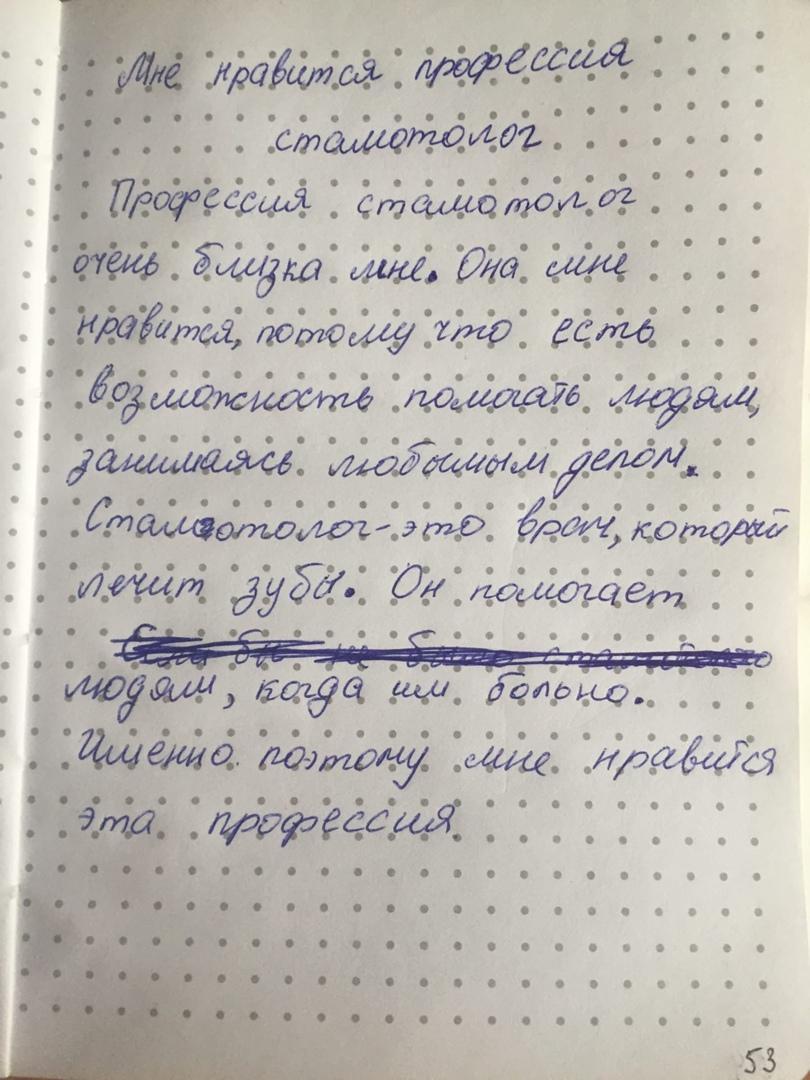 Мне нравится профессия
стамотолог
Профессия стамотолог
очень близка мне. Она мне
нравится, потому что есть
возможность помогать людям,
занимаясь любымым делом.
Стамотолог - это врач, который
лечит зубы. Он помогает
людям, когда им больно.
Именно поэтому мне нравится
эта профессия.
53